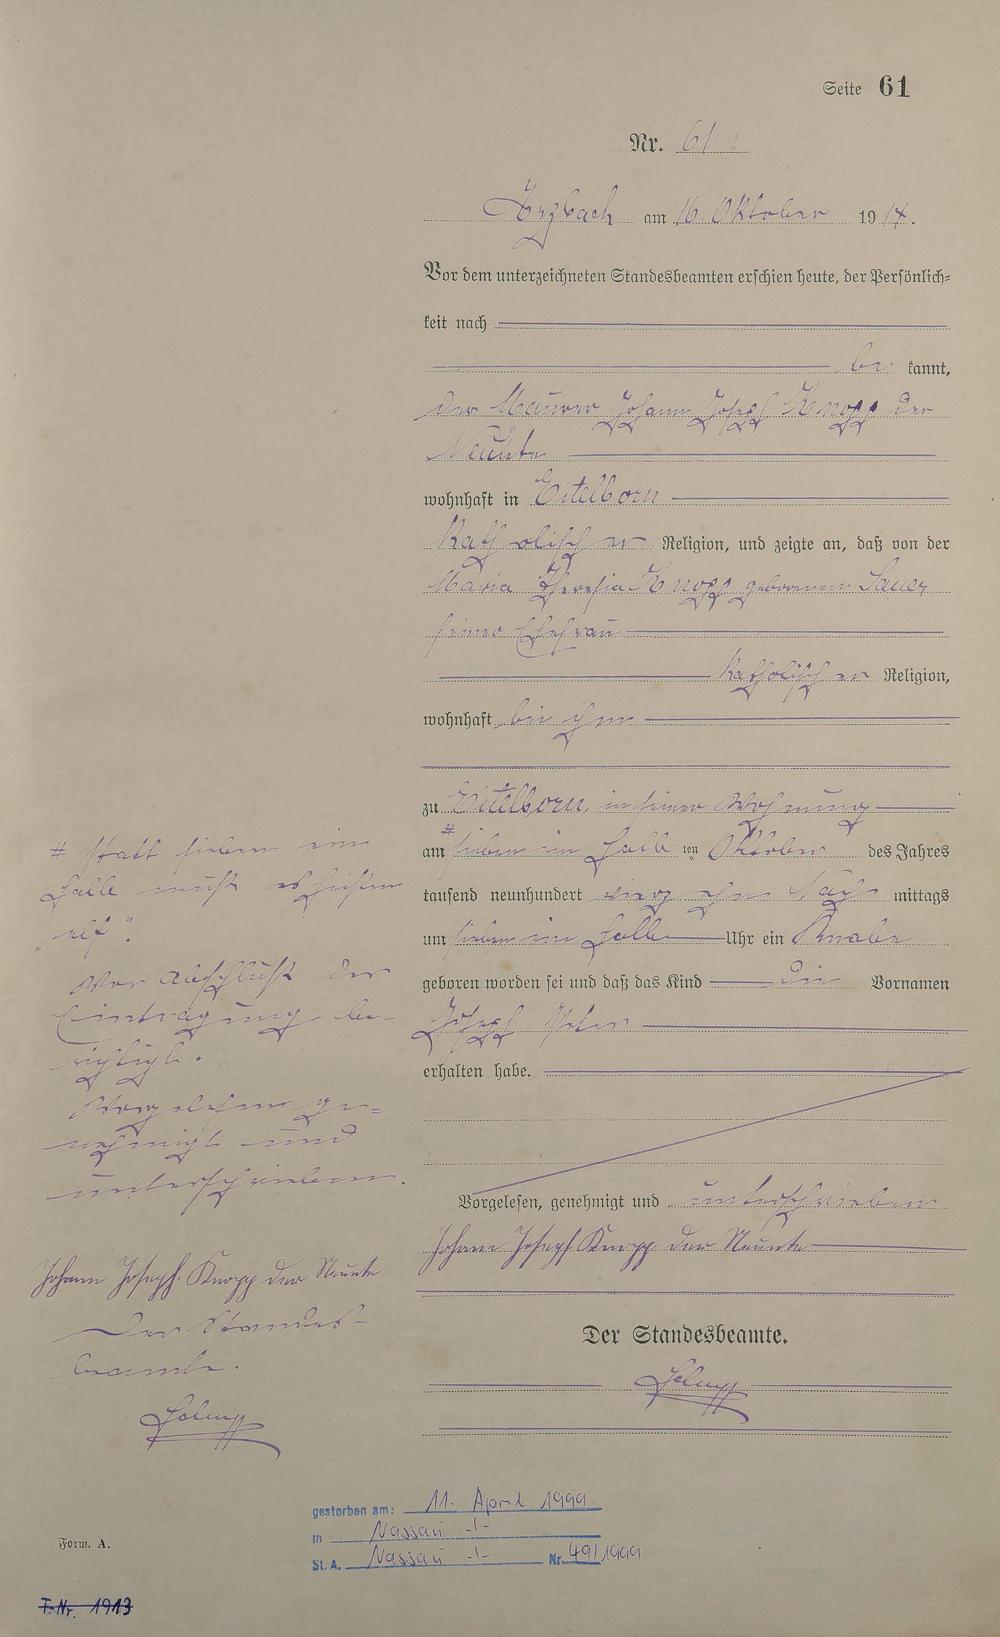 Seite 61
Nr. 61
Arzbach am 16. Oktober 1914.
Vor dem unterzeichneten Standesbeamten erschien heute, der Persönlich-
keit nach
be kannt,
der Maurer Johann Joseph Knopp der
Neunte
wohnhaft in Eitelborn
Katholischer Religion, und zeigte an, daß von der
Maria Theresia Knopp geborenen Sauer
seiner Ehefrau
katholischer Religion,
wohnhaft bei ihm
zu Eitelborn, in seiner Wohnung
am # sieben ein halb ten Oktober des Jahres
tausend neunhundert vierzehn Nach mittags
um sieben ein halb Uhr ein Knabe
geboren worden sei und daß das Kind die Vornamen
Joseph Peter
erhalten habe.
Vorgelesen, genehmigt und unterschrieben
Johann Joseph Knopp der Neunte
Der Standesbeamte.
# statt sieben ein
halb muß es heißen
"elf".
Vor Abschluß der
Eintragung be-
richtigt.
Vorgelesen ge-
nehmigt und
unterschrieben.
Johann Joseph Knopp der Neunte
Der Standes-
beamte.
gestorben am: 11. April 1999
in Nassau -/-
St. A. Nassau -/- Nr. 49/1999
Form. A.
T. Nr. 1913